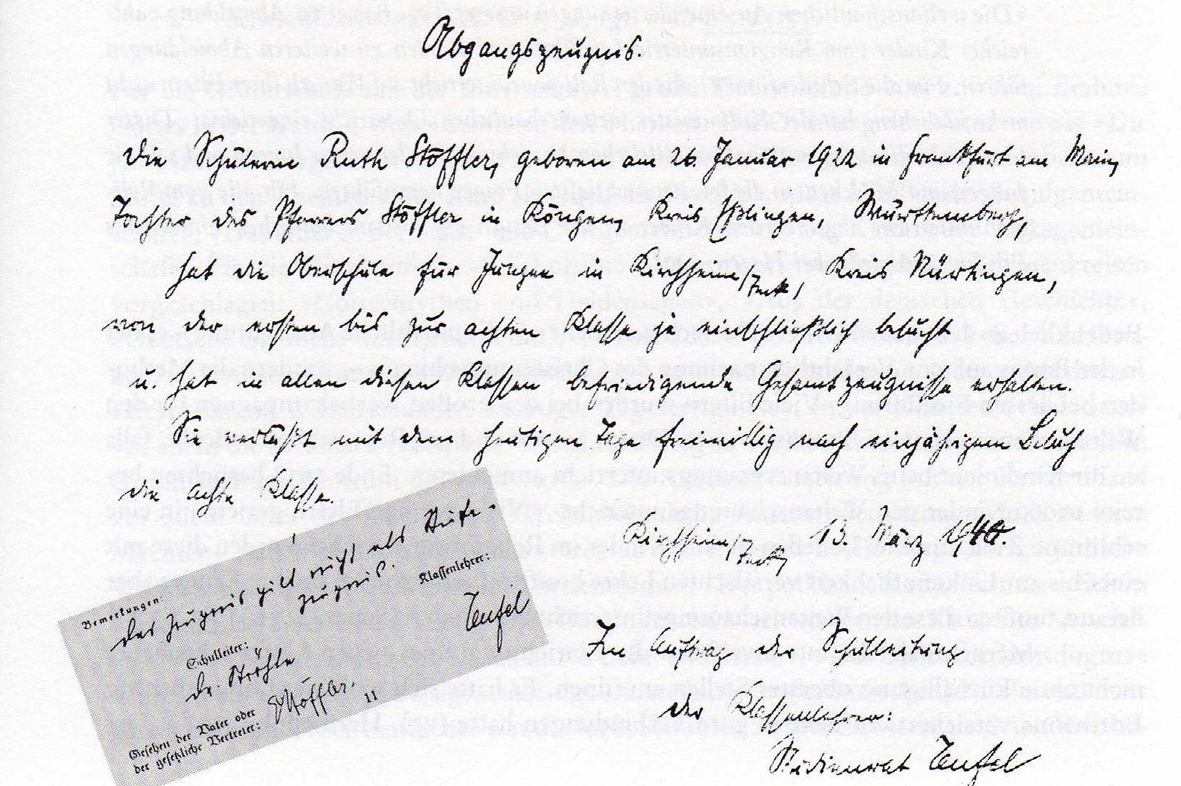 Abgangszeugnis.
Die Schülerin Ruth Stöffler, geboren am 26. Januar 1922 in Frankfurt am Main,
Tochter des Pfarrers Stöffler in Köngen, Kreis Eßlingen, Württemberg,
hat die Oberschule für Jungen in Kirchheim/Teck, Kreis Nürtingen,
von der ersten bis zur achten Klasse je einschließlich besucht
u. hat in allen diesen Klassen befriedigende Gesamtzeugnisse erhalten.
Sie verläßt mit dem heutigen Tage freiwillig nach einjährigem Besuch
die achte Klasse.
Kirchheim/Teck, 13. März 1940.
Im Auftrag der Schulleitung
der Klassenlehrer:
Studienrat Teufel
Bemerkungen:
Das Zeugnis gilt nicht als Reife-
zeugnis.
Klassenlehrer:
Teufel
Schulleiter:
Dr. Ströhle
Gesehen der Vater oder
der gesetzliche Vertreter: Stöffler.
11